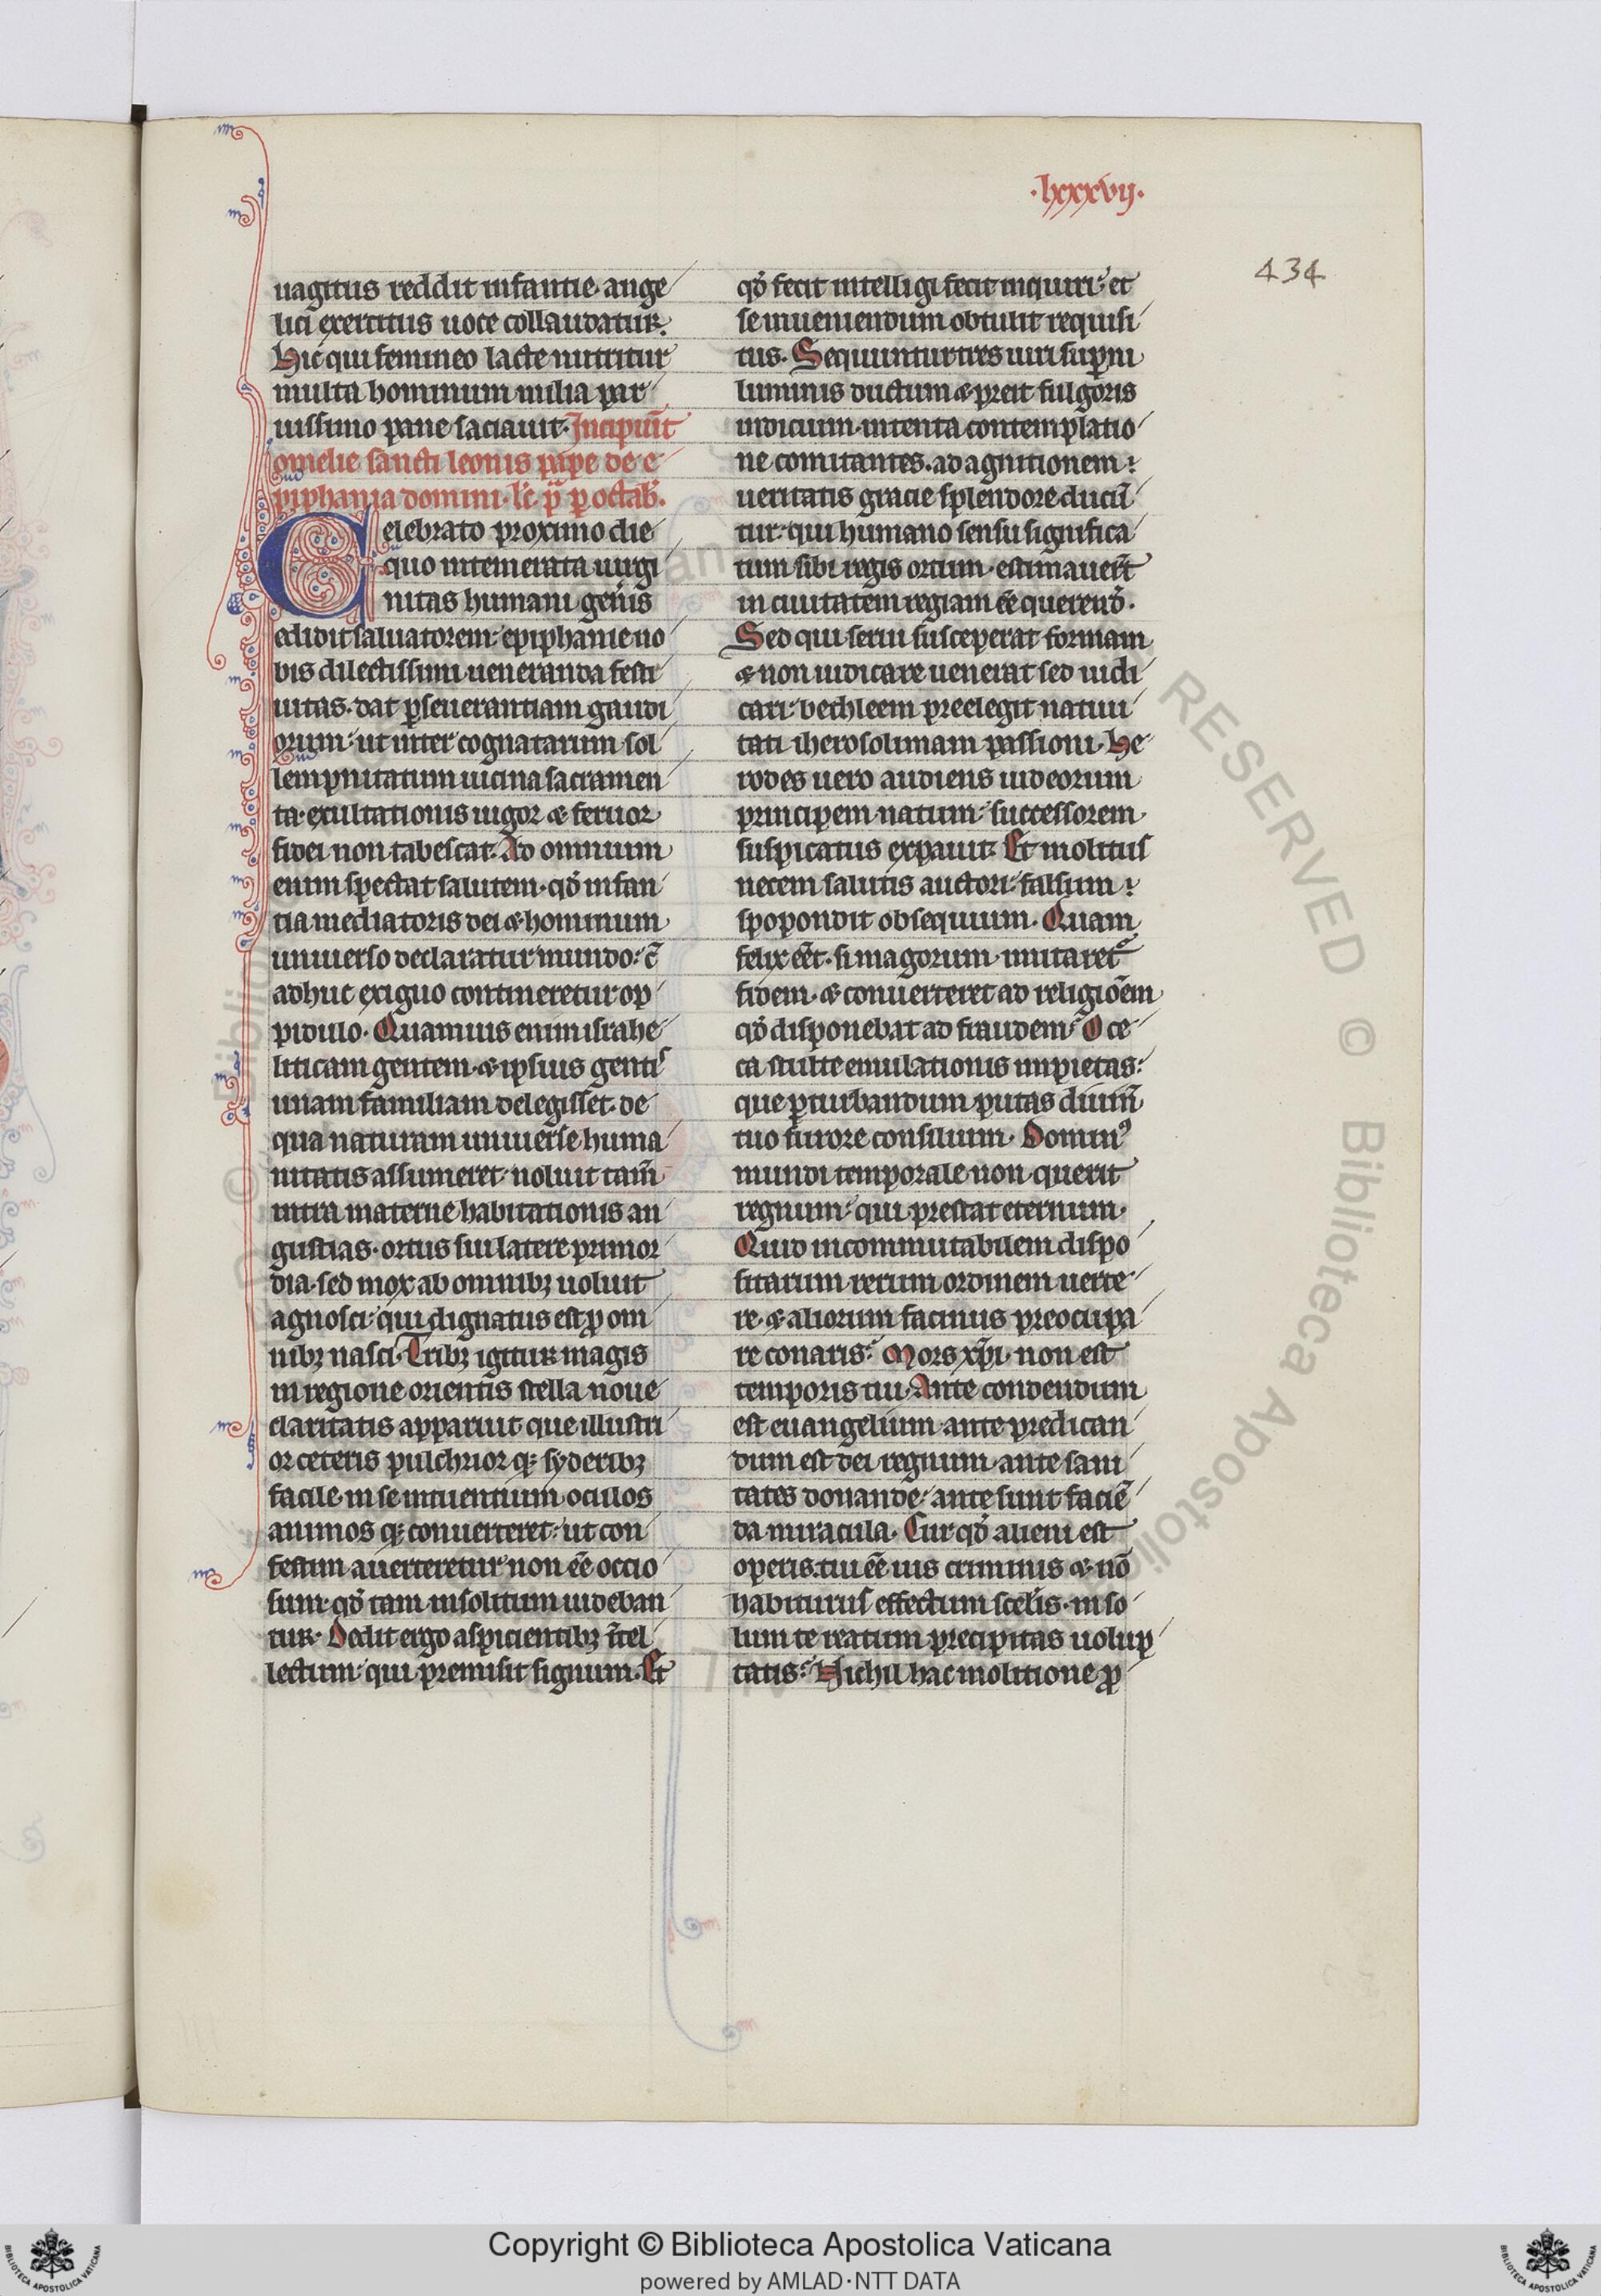 ·lxxxvij·
434
uagitus reddit infantie· ange
lici exercitus uoce collaudatur.
Hic qui femineo lacte nutritur
multa hominum milia par
uissimo pane saciauit· Incipiu̅t
omelie sancti leonis pape de e
piphania domini· lc̅. p̅ p octab̅.
Celebrato proximo die
quo intemerata uirgi
nitas humani gen̅is
edidit saluatorem: epiphanie no
bis dilectissimi ueneranda festi
uitas· dat ꝑseuerantiam gaudi
orum: ut inter cognatarum sol
lempnitatum uicina sacramen
ta· exultationis uigor & feruor
fidei non tabescat. Ad omnium
enim spectat salutem· qd̅ infan
tia mediatoris dei & hominum
uniuerso declaratur mundo: c̅
adhuc exiguo contineretur op
pidulo· Quamuis enim israhe
liticam gentem· & ipsius gentis
unam familiam delegisset· de
qua naturam uniuerse huma
nitatis assumeret· noluit tam̅
intra materne habitationis an
gustias· ortus sui latere primor
dia· sed mox ab omnibꝫ uoluit
agnosci· qui dignatus est ꝓ om
nibꝫ nasci· Tribꝫ igitur magis
in regione orientis stella noue
claritatis apparuit· que illustri
or ceteris pulchrior qꝫ syderibꝫ
facile· in se intuentium oculos
animos qꝫ conuerteret: ut con
festim auerteretur non ee̅ occio
sum· qd̅ tam insolitum uideban
tur· Dedit ergo aspicientibꝫ i̅tel
lectum· qui premisit signum· Et
qd̅ fecit intelligi fecit inquiri: et
se inueniendum obtulit requisi
tus· Sequuntur tres uiri sup̅ni
luminis ductum & preit fulgoris
indicium· intenta contemplatio
ne comitantes· ad agnitionem
ueritatis gracie splendore ducu̅
tur: qui humano sensu significa
tum sibi regis ortum· estimauer̅t
in ciuitatem regiam ee̅ querend̅·
Sed qui serui susceperat formam
& non iudicare uenerat sed iudi
cari· bethleem preelegit natiui
tati iherosolimam passioni· He
rodes uero audiens iudeorum
principem natum· successorem
suspicatus expauit· Et molitus
necem salutis auctori· falsum
spopondit obsequium· Quam
felix ee̅t· si magorum· imitaret᷑
fidem· & conuerteret ad religioe̅m
qd̅ disponebat ad fraudem· O ce
ca stulte emulationis impietas:
que ꝑturbandum putas diuin̅
tuo furore consilium· Dominꝰ
mundi temporale non querit
regnum· qui prestat eternum·
Quid incommutabilem dispo
sitarum rerum ordinem uerte
re· & aliorum facinus preocupa
re conaris· Mors xp̅i· non est
temporis tui· Ante condendum
est euangelium· ante predican
dum est dei regnum· ante sani
tates donande· ante sunt facie̅
da miracula· Cur qd̅ alieni est
operis· tui ee̅ uis criminis & no̅
habiturus effectum scel̅is· in so
lum te reatum precipitas uolup
tatis· Nichil hac molitione ꝓ
RESERVED © Biblioteca Apostolica
Copyright © Biblioteca Apostolica Vaticana
powered by AMLAD·NTT DATA